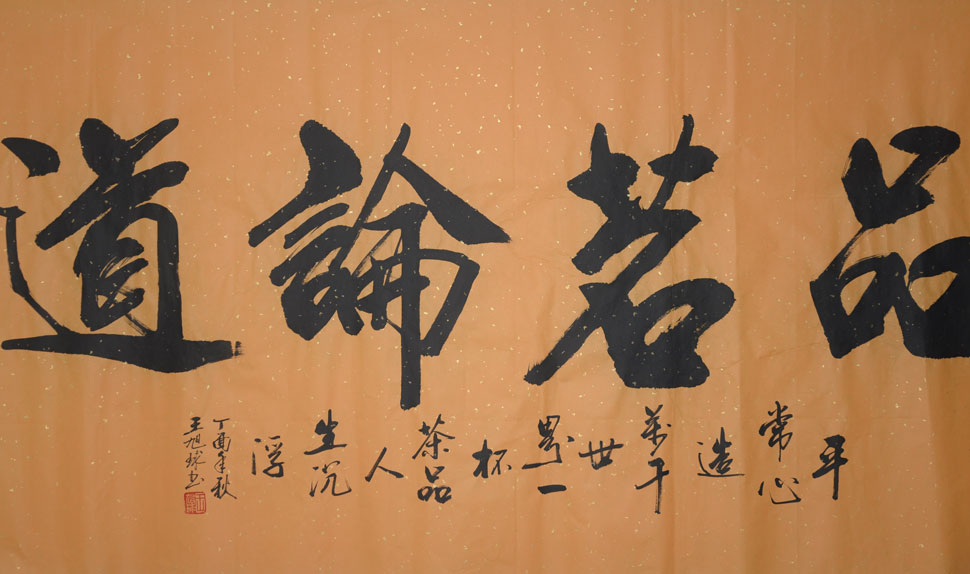 品茗論道
平常心造萬千世界一杯茶品人生沉浮
丁酉年秋
王旭球书